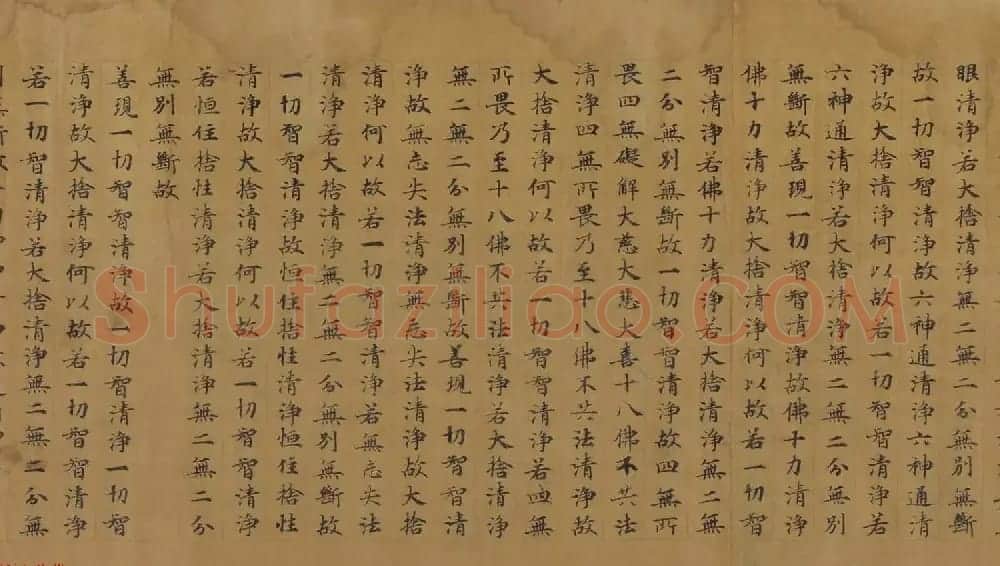 眼清淨若大捨清淨無二無二分無別無斷
故一切智智清淨故六神通清淨六神通清
淨故大捨清淨何以故若一切智智清淨若
六神通清淨若大捨清淨無二無二分無別
無斷故善現一切智智清淨故佛十力清淨
佛十力清淨故大捨清淨何以故若一切智
智清淨若佛十力清淨若大捨清淨無二無
二分無別無斷故一切智智清淨故四無所
畏四無礙解大慈大悲大喜十八佛不共法
清淨四無所畏乃至十八佛不共法清淨故
大捨清淨何以故若一切智智清淨若四無
所畏乃至十八佛不共法清淨若大捨清淨
無二無二分無別無斷故善現一切智智清
淨故無忘失法清淨無忘失法清淨故大捨
清淨何以故若一切智智清淨若無忘失法
清淨若大捨清淨無二無二分無別無斷故
一切智智清淨故恒住捨性清淨恒住捨性
清淨故大捨清淨何以故若一切智智清淨
若恒住捨性清淨若大捨清淨無二無二分
無別無斷故
善現一切智智清淨故一切智清淨一切智
清淨故大捨清淨何以故若一切智智清淨
若一切智清淨若大捨清淨無二無二分無
Shufaziliao.COM